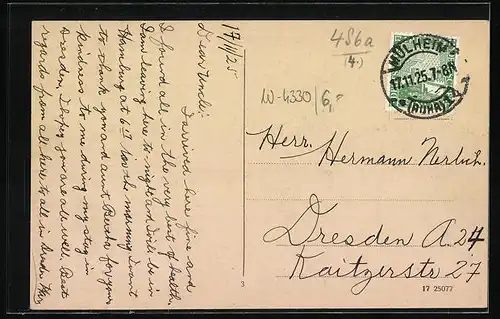 17/11/25
Dear Uncle:
I arrived here fine and
I found all in the very best of health.
I am leaving here to night and will be in
Hamburg at 6 in the morning. I want
to thank you and aunt Bertha for your
kindness to me during my stay in
Dresden, I hope you are all well. Best
regards from all here to all in Dresden
456a
(4.)
W-4330/6,-
MÜLHEIM
17.11.25.7-8N
(RUHR)
Herr. Hermann Nerlich.
Dresden A. 24
Kaitzerstr 27
3
17 25077